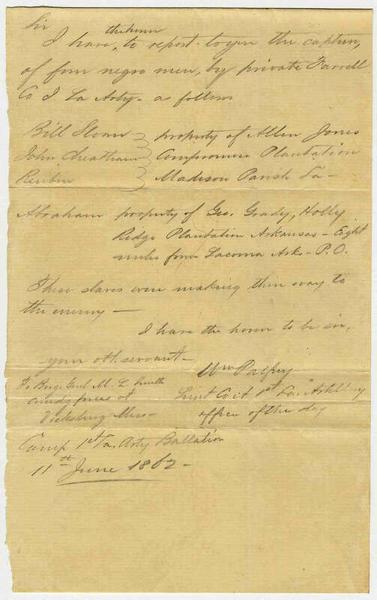 Sir
I have, the honor to report to you the capture,
of four negro men, by private Farrell
Co I La Arty. as follows
Bill Sloan } property of Allen Jones
John Cheatham } Compromise Plantation
Reubin } Madison Parish La -
Abraham property of Geo. Grady, Holly
Ridge Plantation Arkansas - Eight
miles from Laconia Arks - P.O.
These slaves were making their way to
the enemy -
I have the honor to be sir,
your obt. servant -
Wm Palfrey
Lieut Co 1st La. Artillery
officer of the day
To Brig. Genl M. L. Smith
comdg forces at
Vicksburg Miss -
Camp 1st La. Arty Battalion
11th June 1862 -